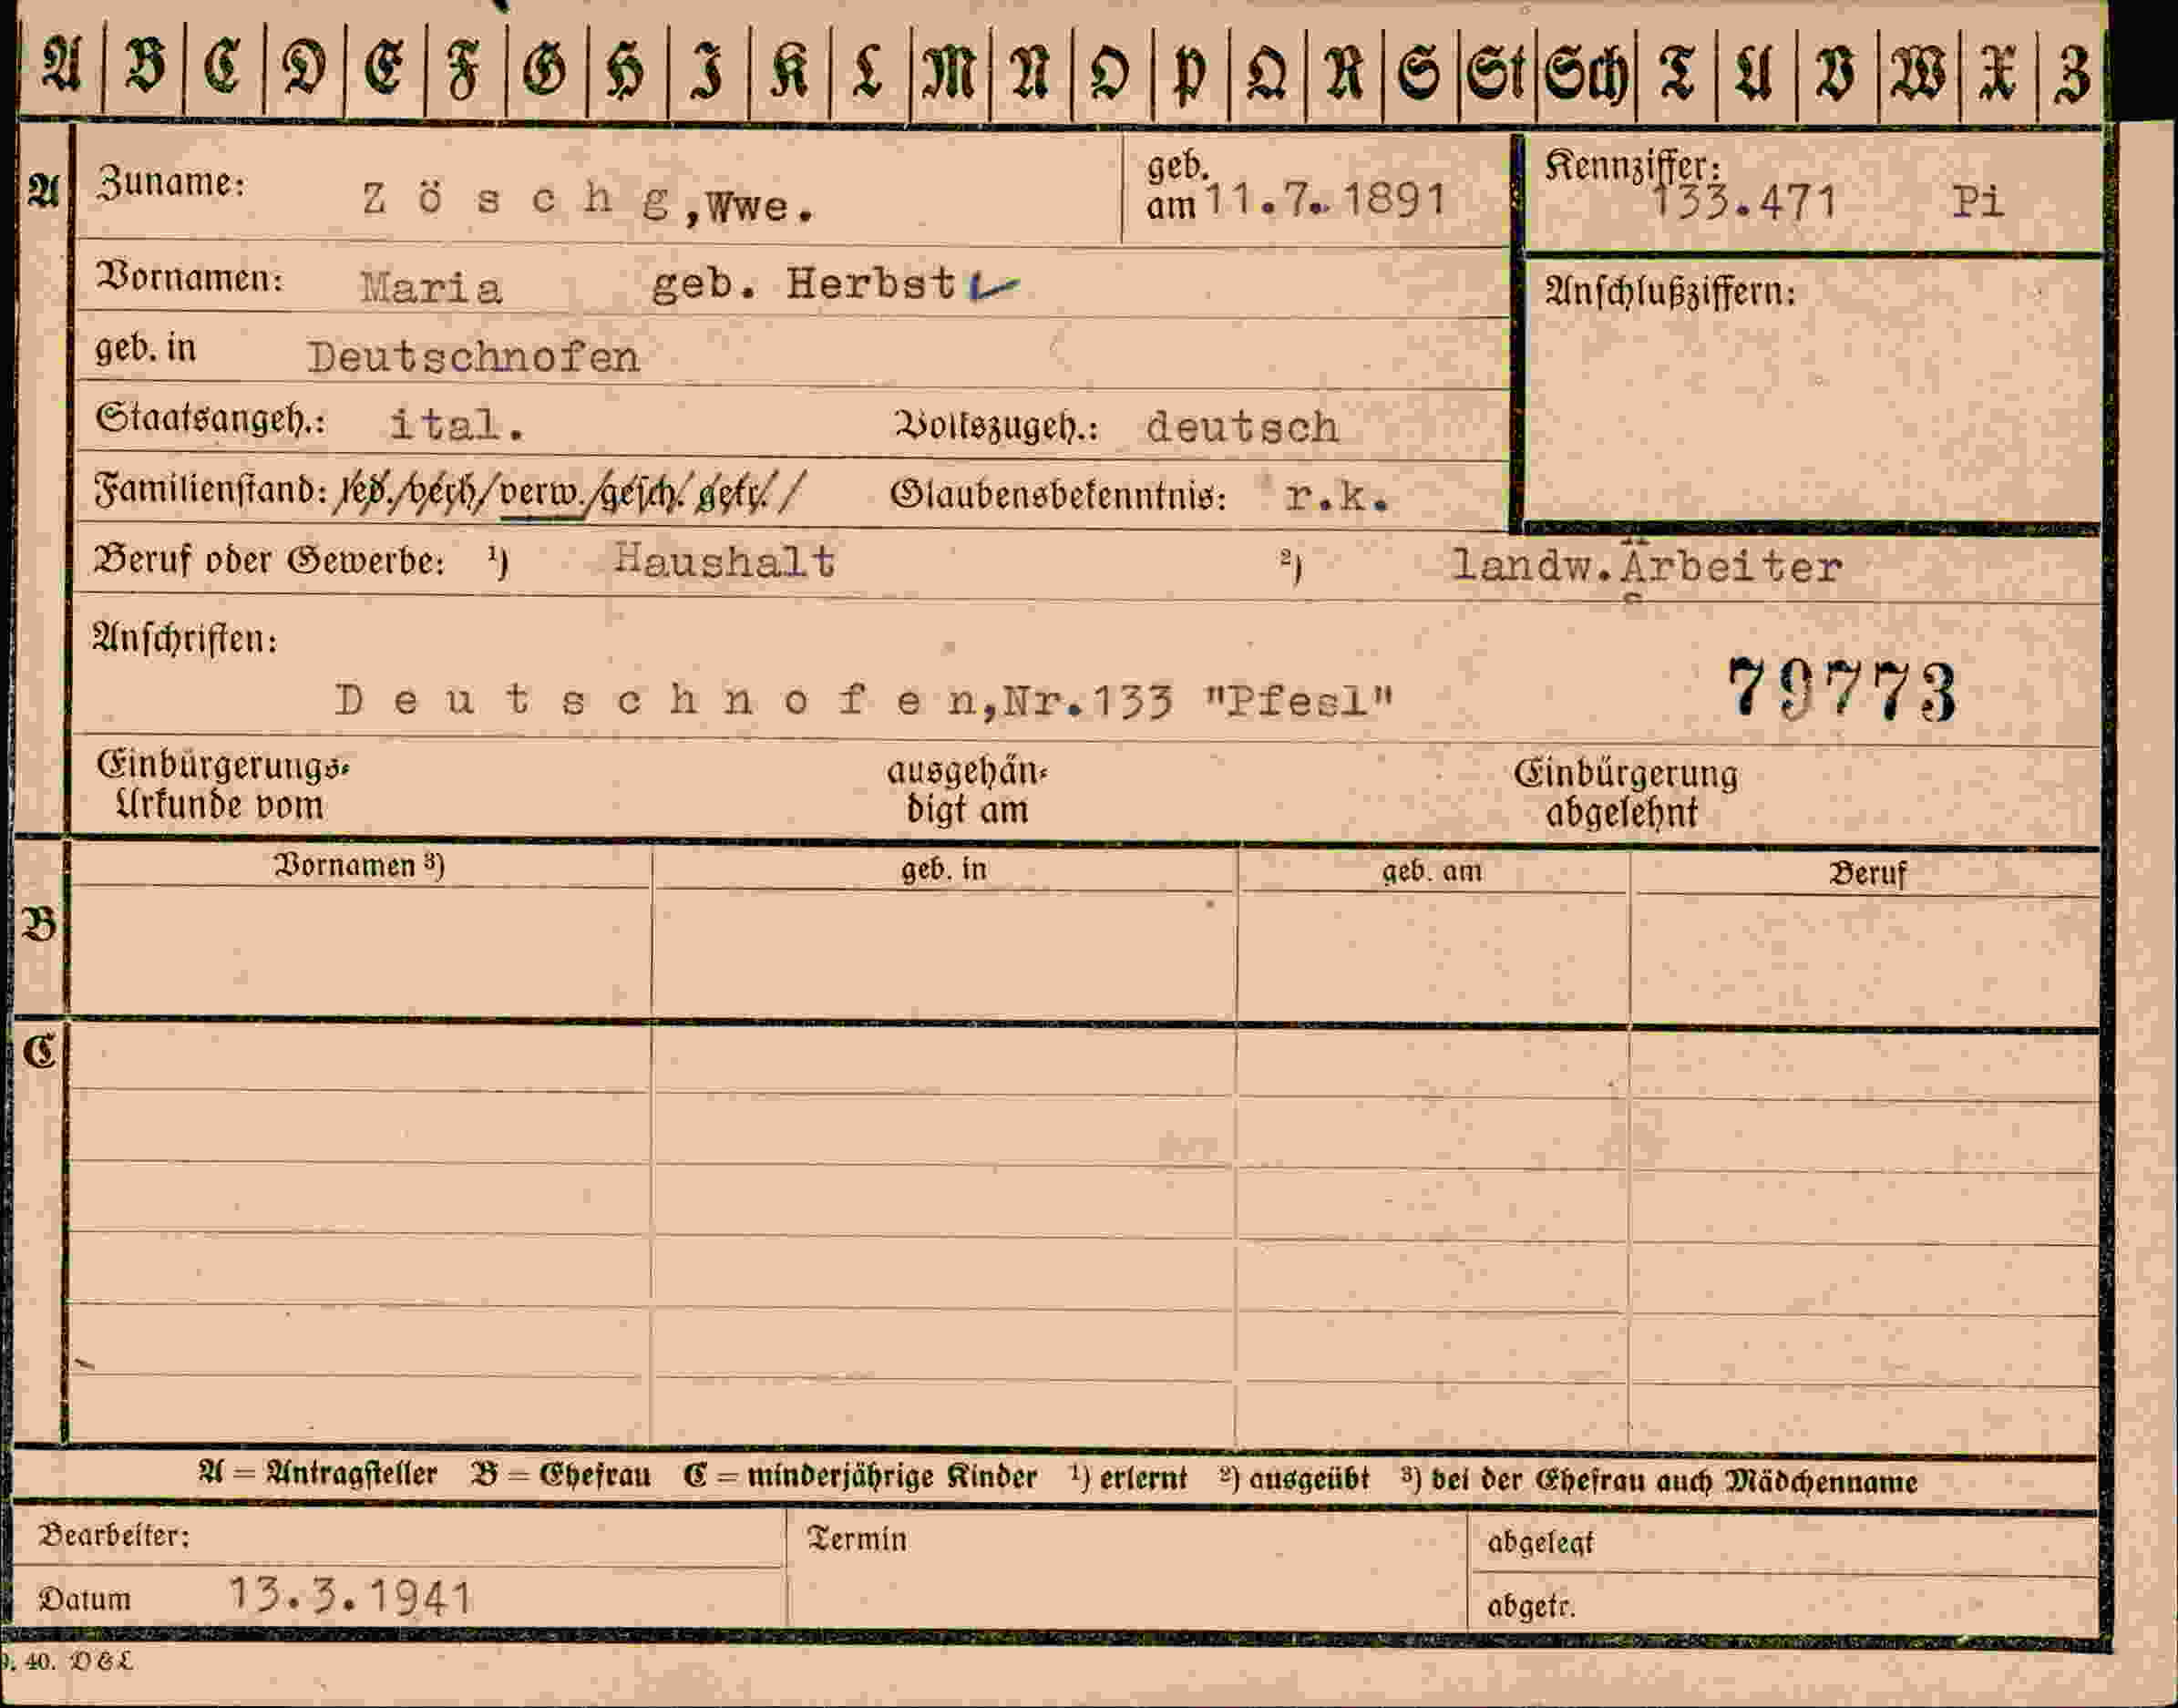 A B C D E F G H I K L M N O P Q R S St Sch T U V W X Z
A Zuname: Zöschg, Wwe. geb. am 11.7.1891 Kennziffer: 133.471 Pi
Vornamen: Maria geb. Herbst Anschlußziffern:
geb. in Deutschnofen
Staatsangeh.: ital. Volkszugeh.: deutsch
Familienstand: led./verh/verw./gesch./getr./ Glaubensbekenntnis: r.k.
Beruf oder Gewerbe: ¹) Haushalt ²) landw.Arbeiter
Anschriften:
Deutschnofen,Nr.133 "Pfesl" 79773
Einbürgerungs- ausgehän- Einbürgerung
Urkunde vom digt am abgelehnt
Vornamen ³) geb. in geb. am Beruf
B
C
A = Antragsteller B = Ehefrau C = minderjährige Kinder ¹) erlernt ²) ausgeübt ³) bei der Ehefrau auch Mädchenname
Bearbeiter: Termin abgelegt
Datum 13.3.1941 abgetr.
9. 40. D&L